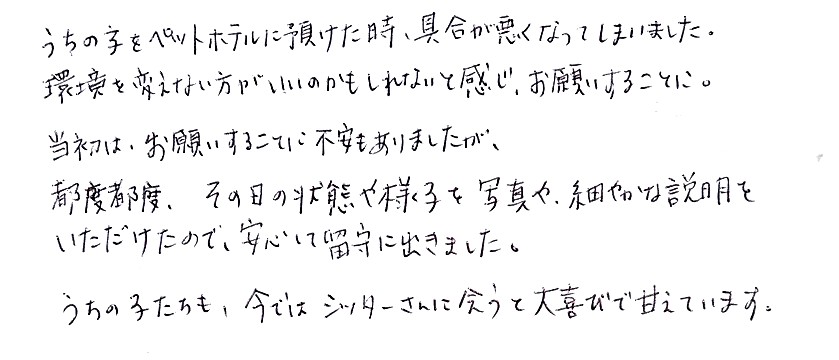 うちの子をペットホテルに預けた時、具合が悪くなってしまいました。
環境を変えない方がいいのかもしれないと感じ、お願いすることに。
当初は、お願いすることに不安もありましたが、
都度都度、その日の状態や様子を写真や、細やかな説明を
いただけたので、安心して留守に出きました。
うちの子たちも、今ではシッターさんに会うと大喜びで甘えています。